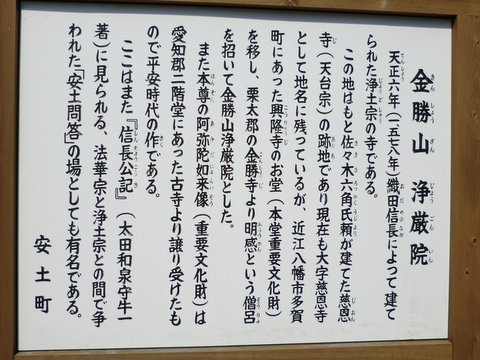 金勝山 浄厳院
天正六年(一五七八年)織田信長によって建て
られた浄土宗の寺である。
この地はもと佐々木六角氏頼が建てた慈恩
寺(天台宗)の跡地であり現在も大字慈恩寺
として地名に残っているが、近江八幡市多賀
町にあった興隆寺のお堂(本堂重要文化財)
を移し、栗太郡の金勝寺より明感という僧侶
を招いて金勝山浄厳院とした。
また本尊の阿弥陀如来像(重要文化財)は
愛知郡二階堂にあった古寺より譲り受けたも
ので平安時代の作である。
ここはまた『信長公記』(太田和泉守牛一
著)に見られる、法華宗と浄土宗との間で争
われた「安土問答」の場としても有名である。
安土町